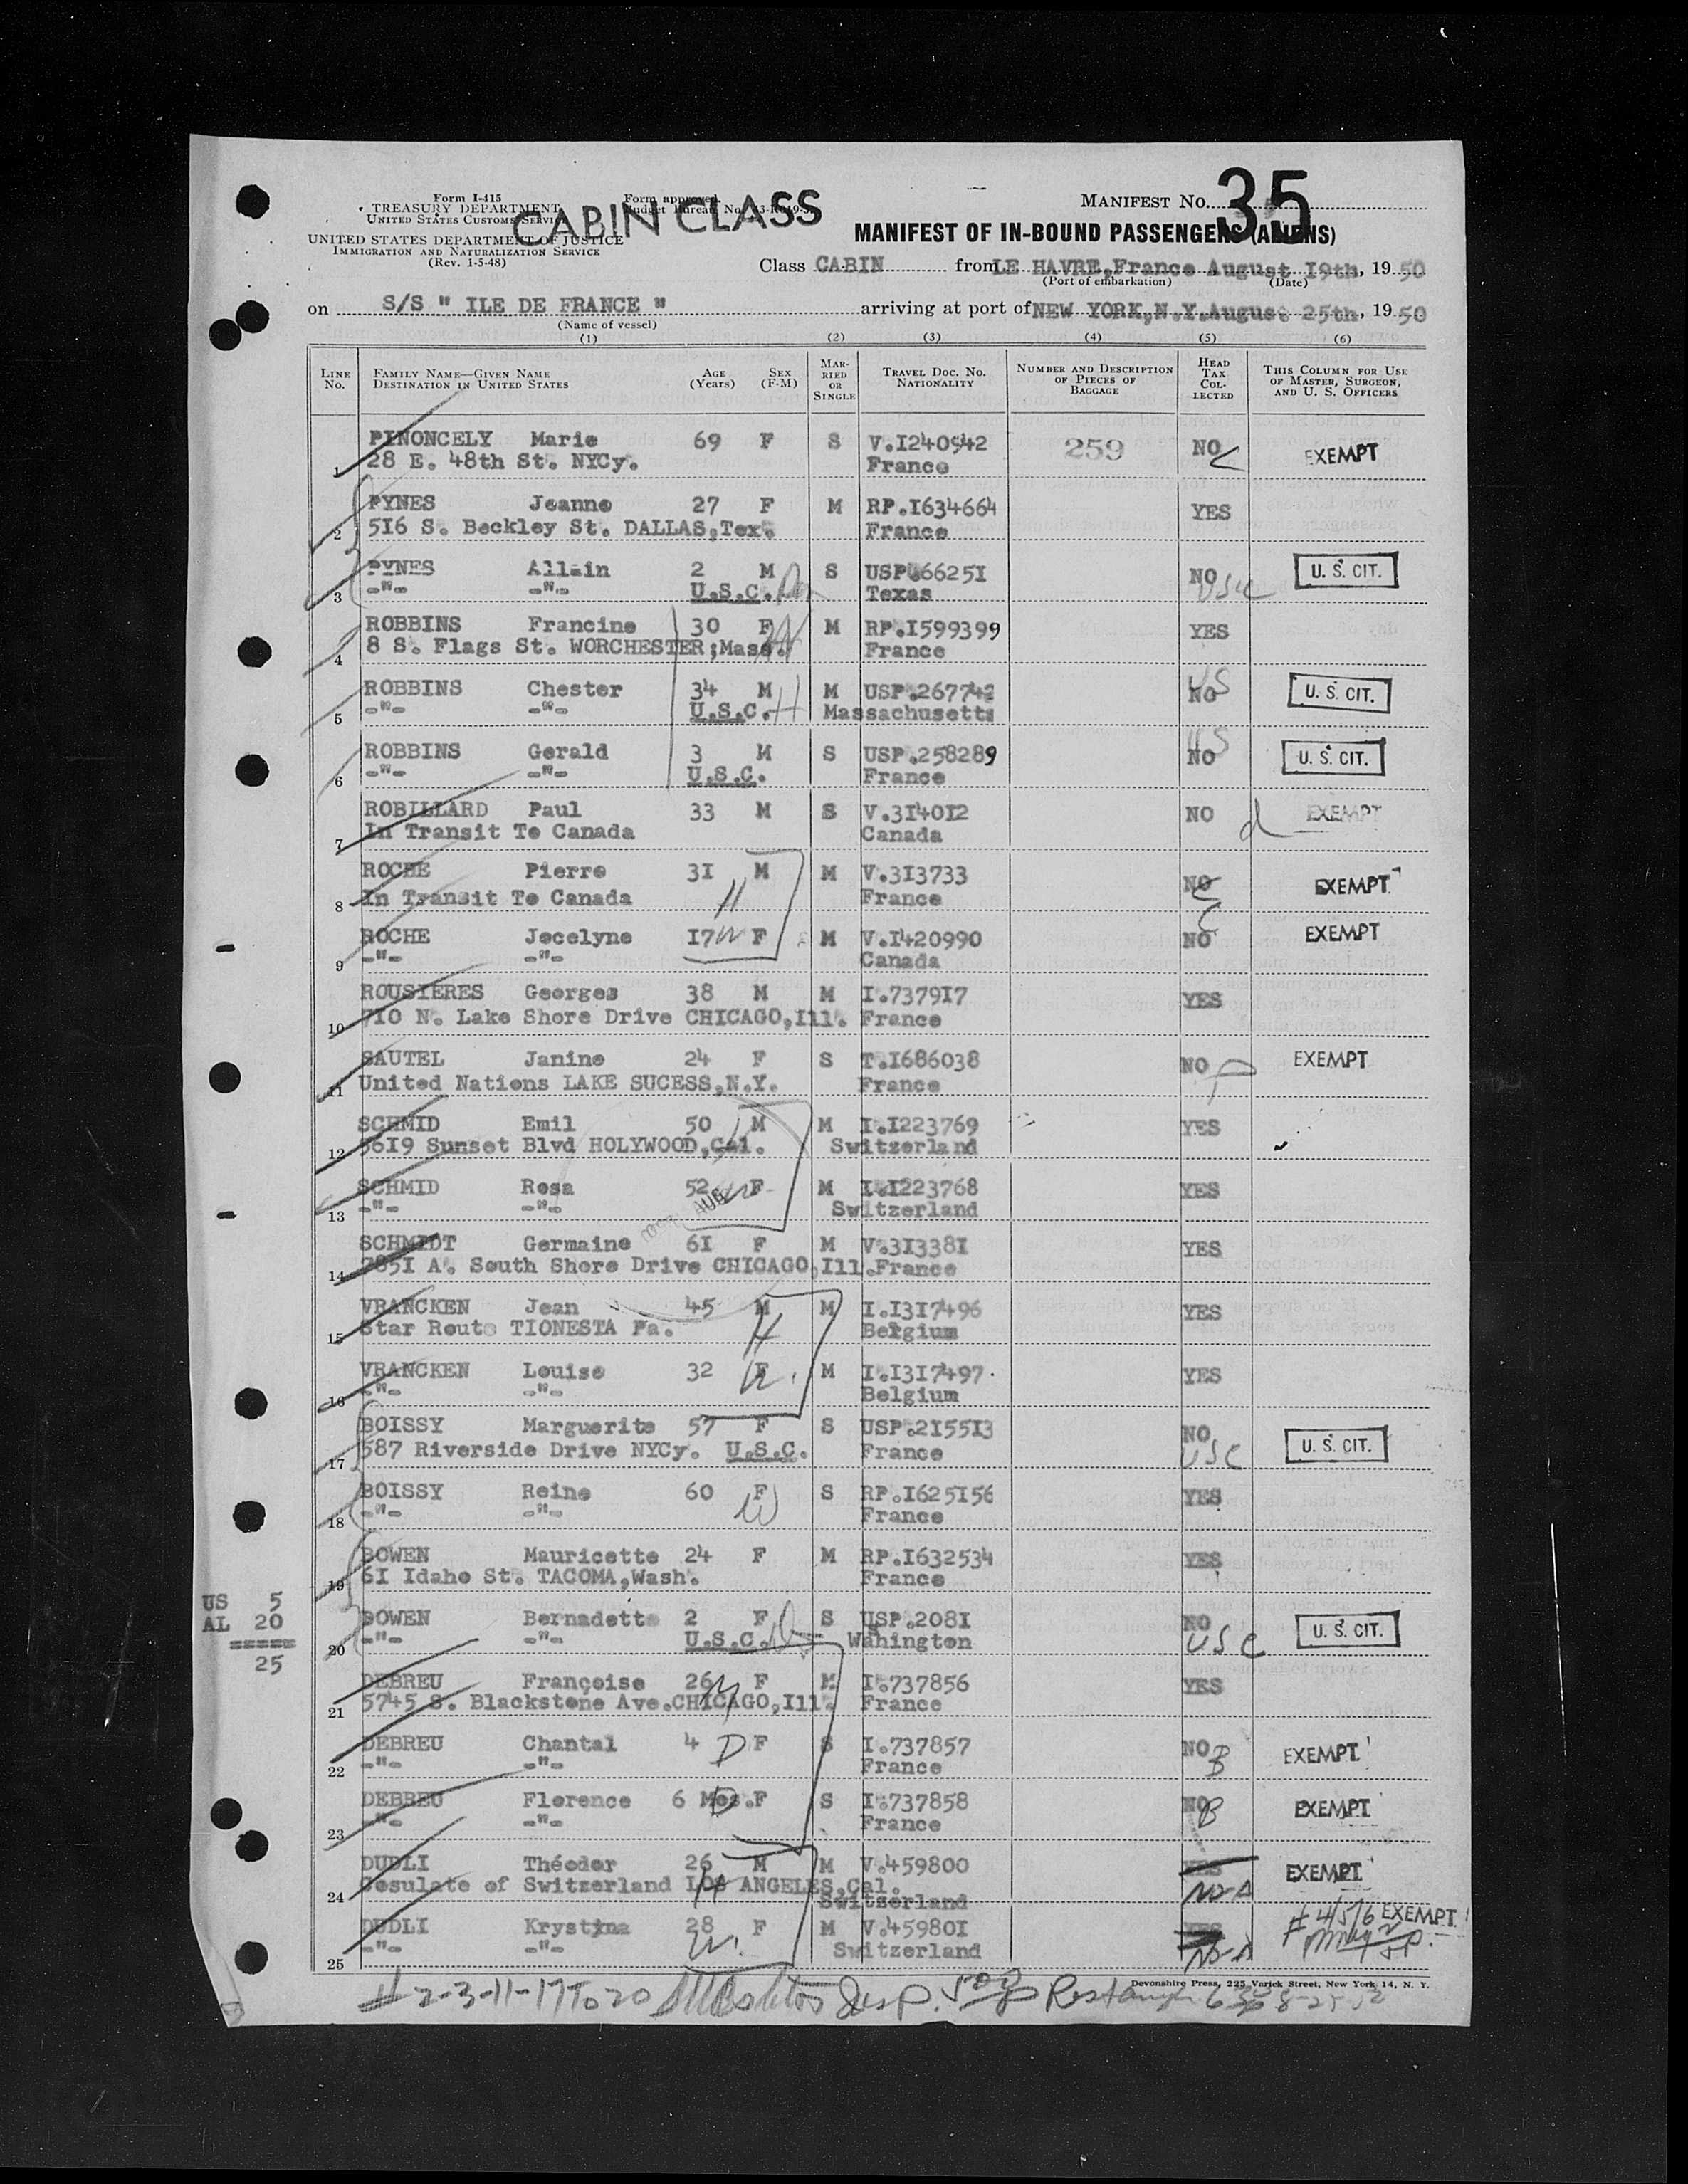 Form I-415
TREASURY DEPARTMENT
UNITED STATES CUSTOMS SERVICE
UNITED STATES DEPARTMENT OF JUSTICE
IMMIGRATION AND NATURALIZATION SERVICE
(Rev. 1-5-48)
Form approved.
Budget Bureau No.
CABIN CLASS
MANIFEST No. 35
MANIFEST OF IN-BOUND PASSENGERS (ALIENS)
Class CABIN from LE HAVRE,France August I9th, 19 50
(Port of embarkation) (Date)
on S/S " ILE DE FRANCE " arriving at port of NEW YORK,N.Y.August 25th, 19 50
(Name of vessel)
(1) (2) (3) (4) (5) (6)
LINE No. FAMILY NAME—GIVEN NAME DESTINATION IN UNITED STATES AGE (Years) SEX (F-M) MARRIED OR SINGLE TRAVEL DOC. No. NATIONALITY NUMBER AND DESCRIPTION OF PIECES OF BAGGAGE HEAD TAX COLLECTED THIS COLUMN FOR USE OF MASTER, SURGEON, AND U. S. OFFICERS
PINONCELY Marie 69 F S V.I240942 259 NO EXEMPT
1 28 E. 48th St. NYCy. France
PYNES Jeanne 27 F M RP.I634664 YES
2 5I6 S. Beckley St. DALLAS,Tex. France
PYNES Allain 2 M S USP.6625I NO U. S. CIT.
3 -"- -"- U.S.C. Texas USC
ROBBINS Francine 30 F M RP.I599399 YES
4 8 S. Flags St. WORCHESTER;Mass. France
ROBBINS Chester 34 M M USP.267742 NO US U. S. CIT.
5 -"- -"- U.S.C. H Massachusetts
ROBBINS Gerald 3 M S USP.258289 NO US U. S. CIT.
6 -"- -"- U.S.C. France
ROBILLARD Paul 33 M S V.3I40I2 NO EXEMPT
7 In Transit To Canada Canada
ROCHE Pierre 3I M M V.3I3733 NO EXEMPT
8 In Transit To Canada H France
ROCHE Jocelyne I7 W F M V.I420990 NO EXEMPT
9 -"- -"- Canada
ROUSIERES Georges 38 M M I.7379I7 YES
10 7I0 N. Lake Shore Drive CHICAGO,Ill. France
SAUTEL Janine 24 F S T.I686038 NO EXEMPT
11 United Nations LAKE SUCESS,N.Y. France
SCHMID Emil 50 M M I.I223769 YES
12 56I9 Sunset Blvd HOLYWOOD,Cal. Switzerland
SCHMID Rosa 52 F M I.I223768 YES
13 -"- -"- AUG Switzerland
SCHMIDT Germaine 6I F M V.3I338I YES
14 785I A. South Shore Drive CHICAGO,Ill. France
VRANCKEN Jean 45 M M I.I3I7496 YES
15 Star Route TIONESTA Pa. H Belgium
VRANCKEN Louise 32 F M I.I3I7497 YES
16 -"- -"- W. Belgium
BOISSY Marguerite 57 F S USP.2I55I3 NO U. S. CIT.
17 587 Riverside Drive NYCy. U.S.C. France USC
BOISSY Reine 60 F S RP.I625I56 YES
18 -"- -"- W France
BOWEN Mauricette 24 F M RP.I632534 YES
19 6I Idaho St. TACOMA,Wash. France
BOWEN Bernadette 2 F S USP.208I NO U. S. CIT.
20 -"- -"- U.S.C. Wahington USC
US 5
AL 20
=====
25
DEBREU Françoise 26 F M I.737856 YES
21 5745 S. Blackstone Ave.CHICAGO,Ill. France
DEBREU Chantal 4 D F S I.737857 NO B EXEMPT
22 -"- -"- France
DEBREU Florence 6 Mos. F S I.737858 NO B EXEMPT
23 -"- -"- D France
DUDLI Théodor 26 M M V.459800 YES EXEMPT
24 Cosulate of Switzerland LOS ANGELES,Cal. H Switzerland NO-A
DUDLI Krystyna 28 F M V.45980I YES EXEMPT
25 -"- -"- W. Switzerland NO-A
# 4/5/6
Devonshire Press, 225 Varick Street, New York 14, N. Y.
# 2-3-11-17 To 20 Insp.